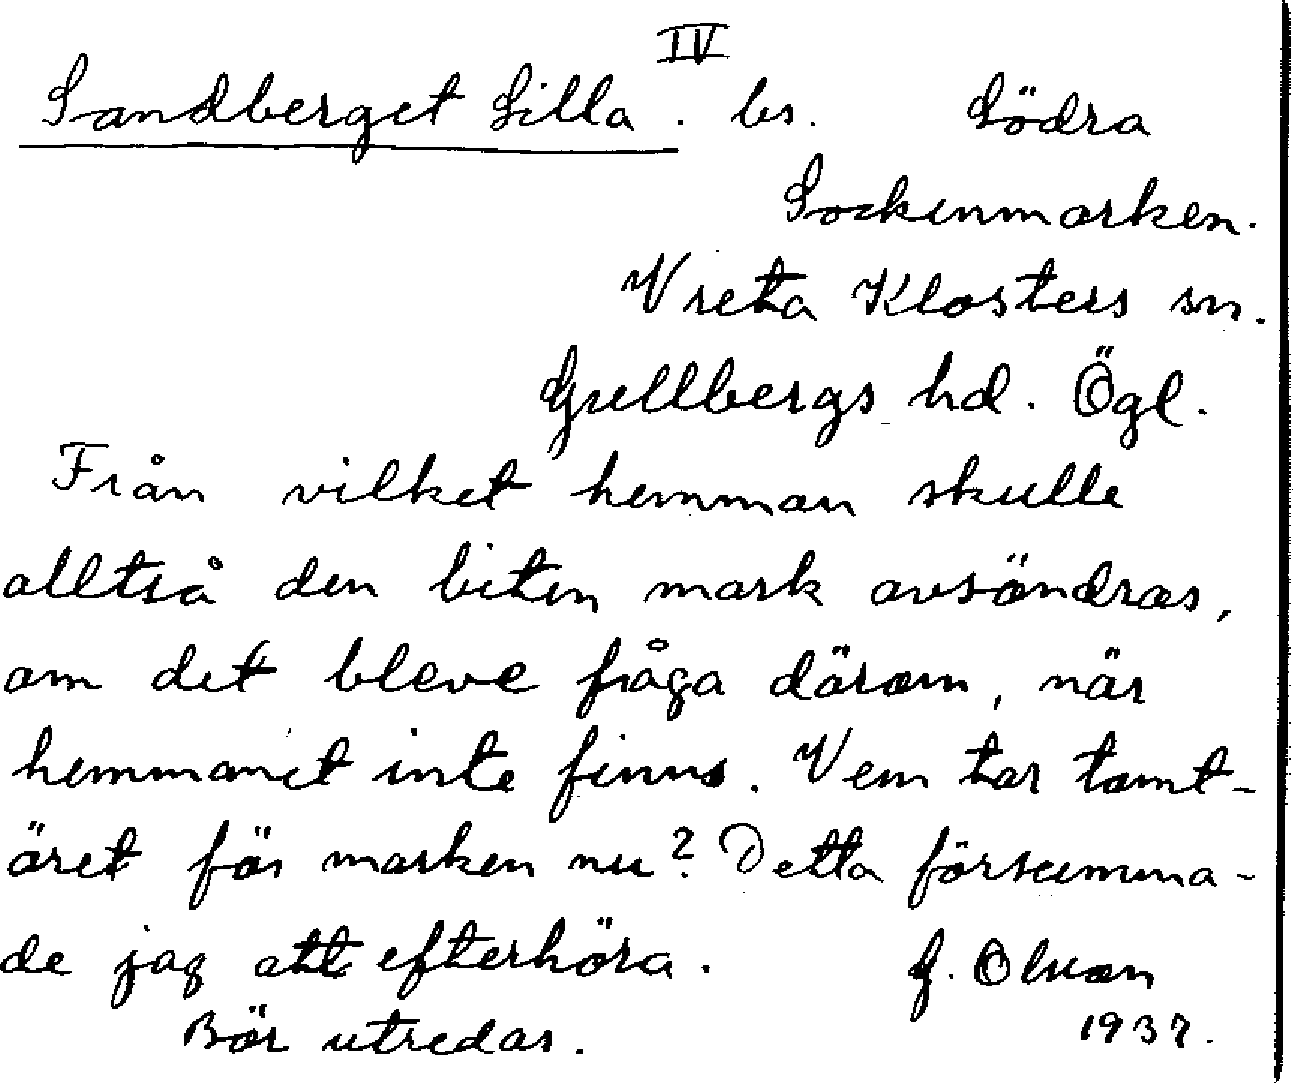 IV
Sandberget Lilla. bs. Södra
Sockenmarken.
Vreta Klosters sn.
Gullbergs hd. Ögl.
Från vilket hemman skulle
alltså den biten mark avsöndras,
om det bleve fråga därom, när
hemmanet inte finns. Vem tar tomt-
öret för marken nu? Detta försumma-
de jag att efterhöra. J. Olson
Bör utredas. 1937.